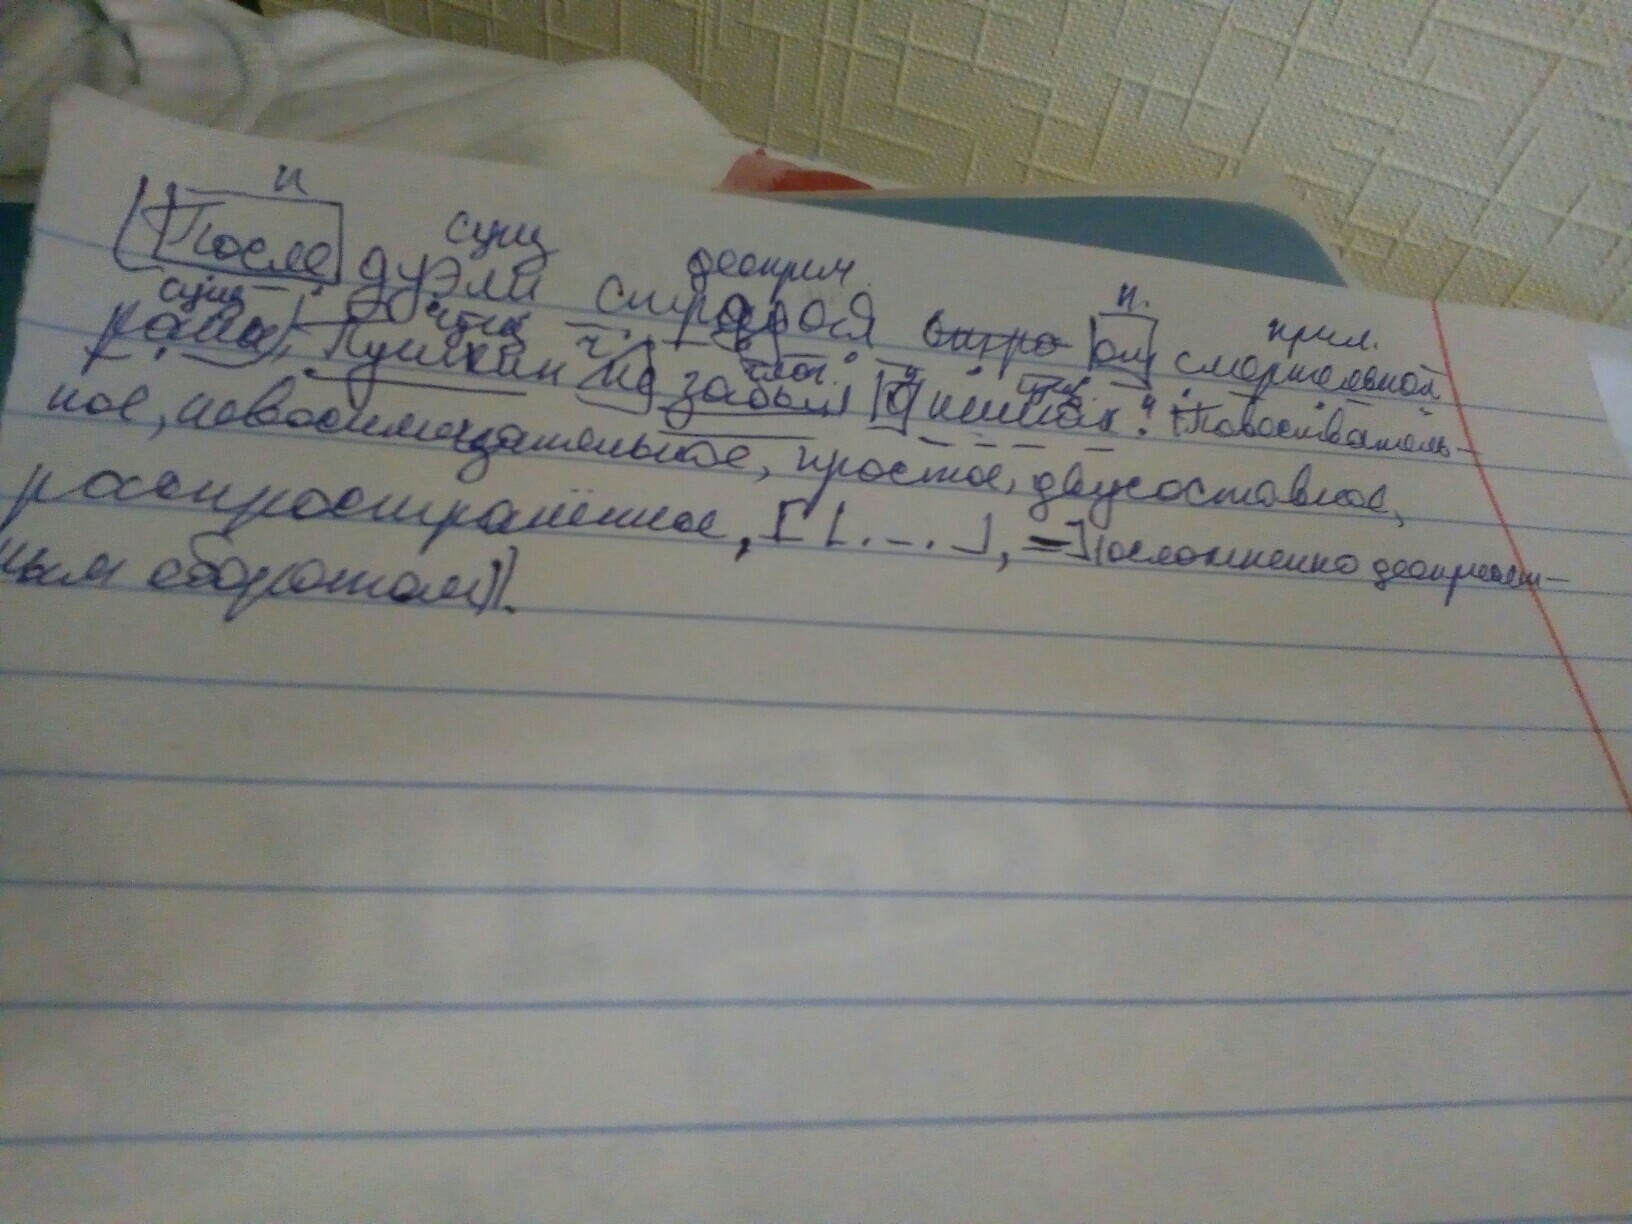 п
сущ деоприч. п. прил.
После дуэли страдая от смертельной
сущ сущ ч. глаг. п сущ.
раны, Пушкин не забыл о книгах. (Повествователь-
ное, невосклицательное, простое, двусоставное,
распространённое, [|.-.-.|, =] (осложненно деопричаст-
ным оборотом)).